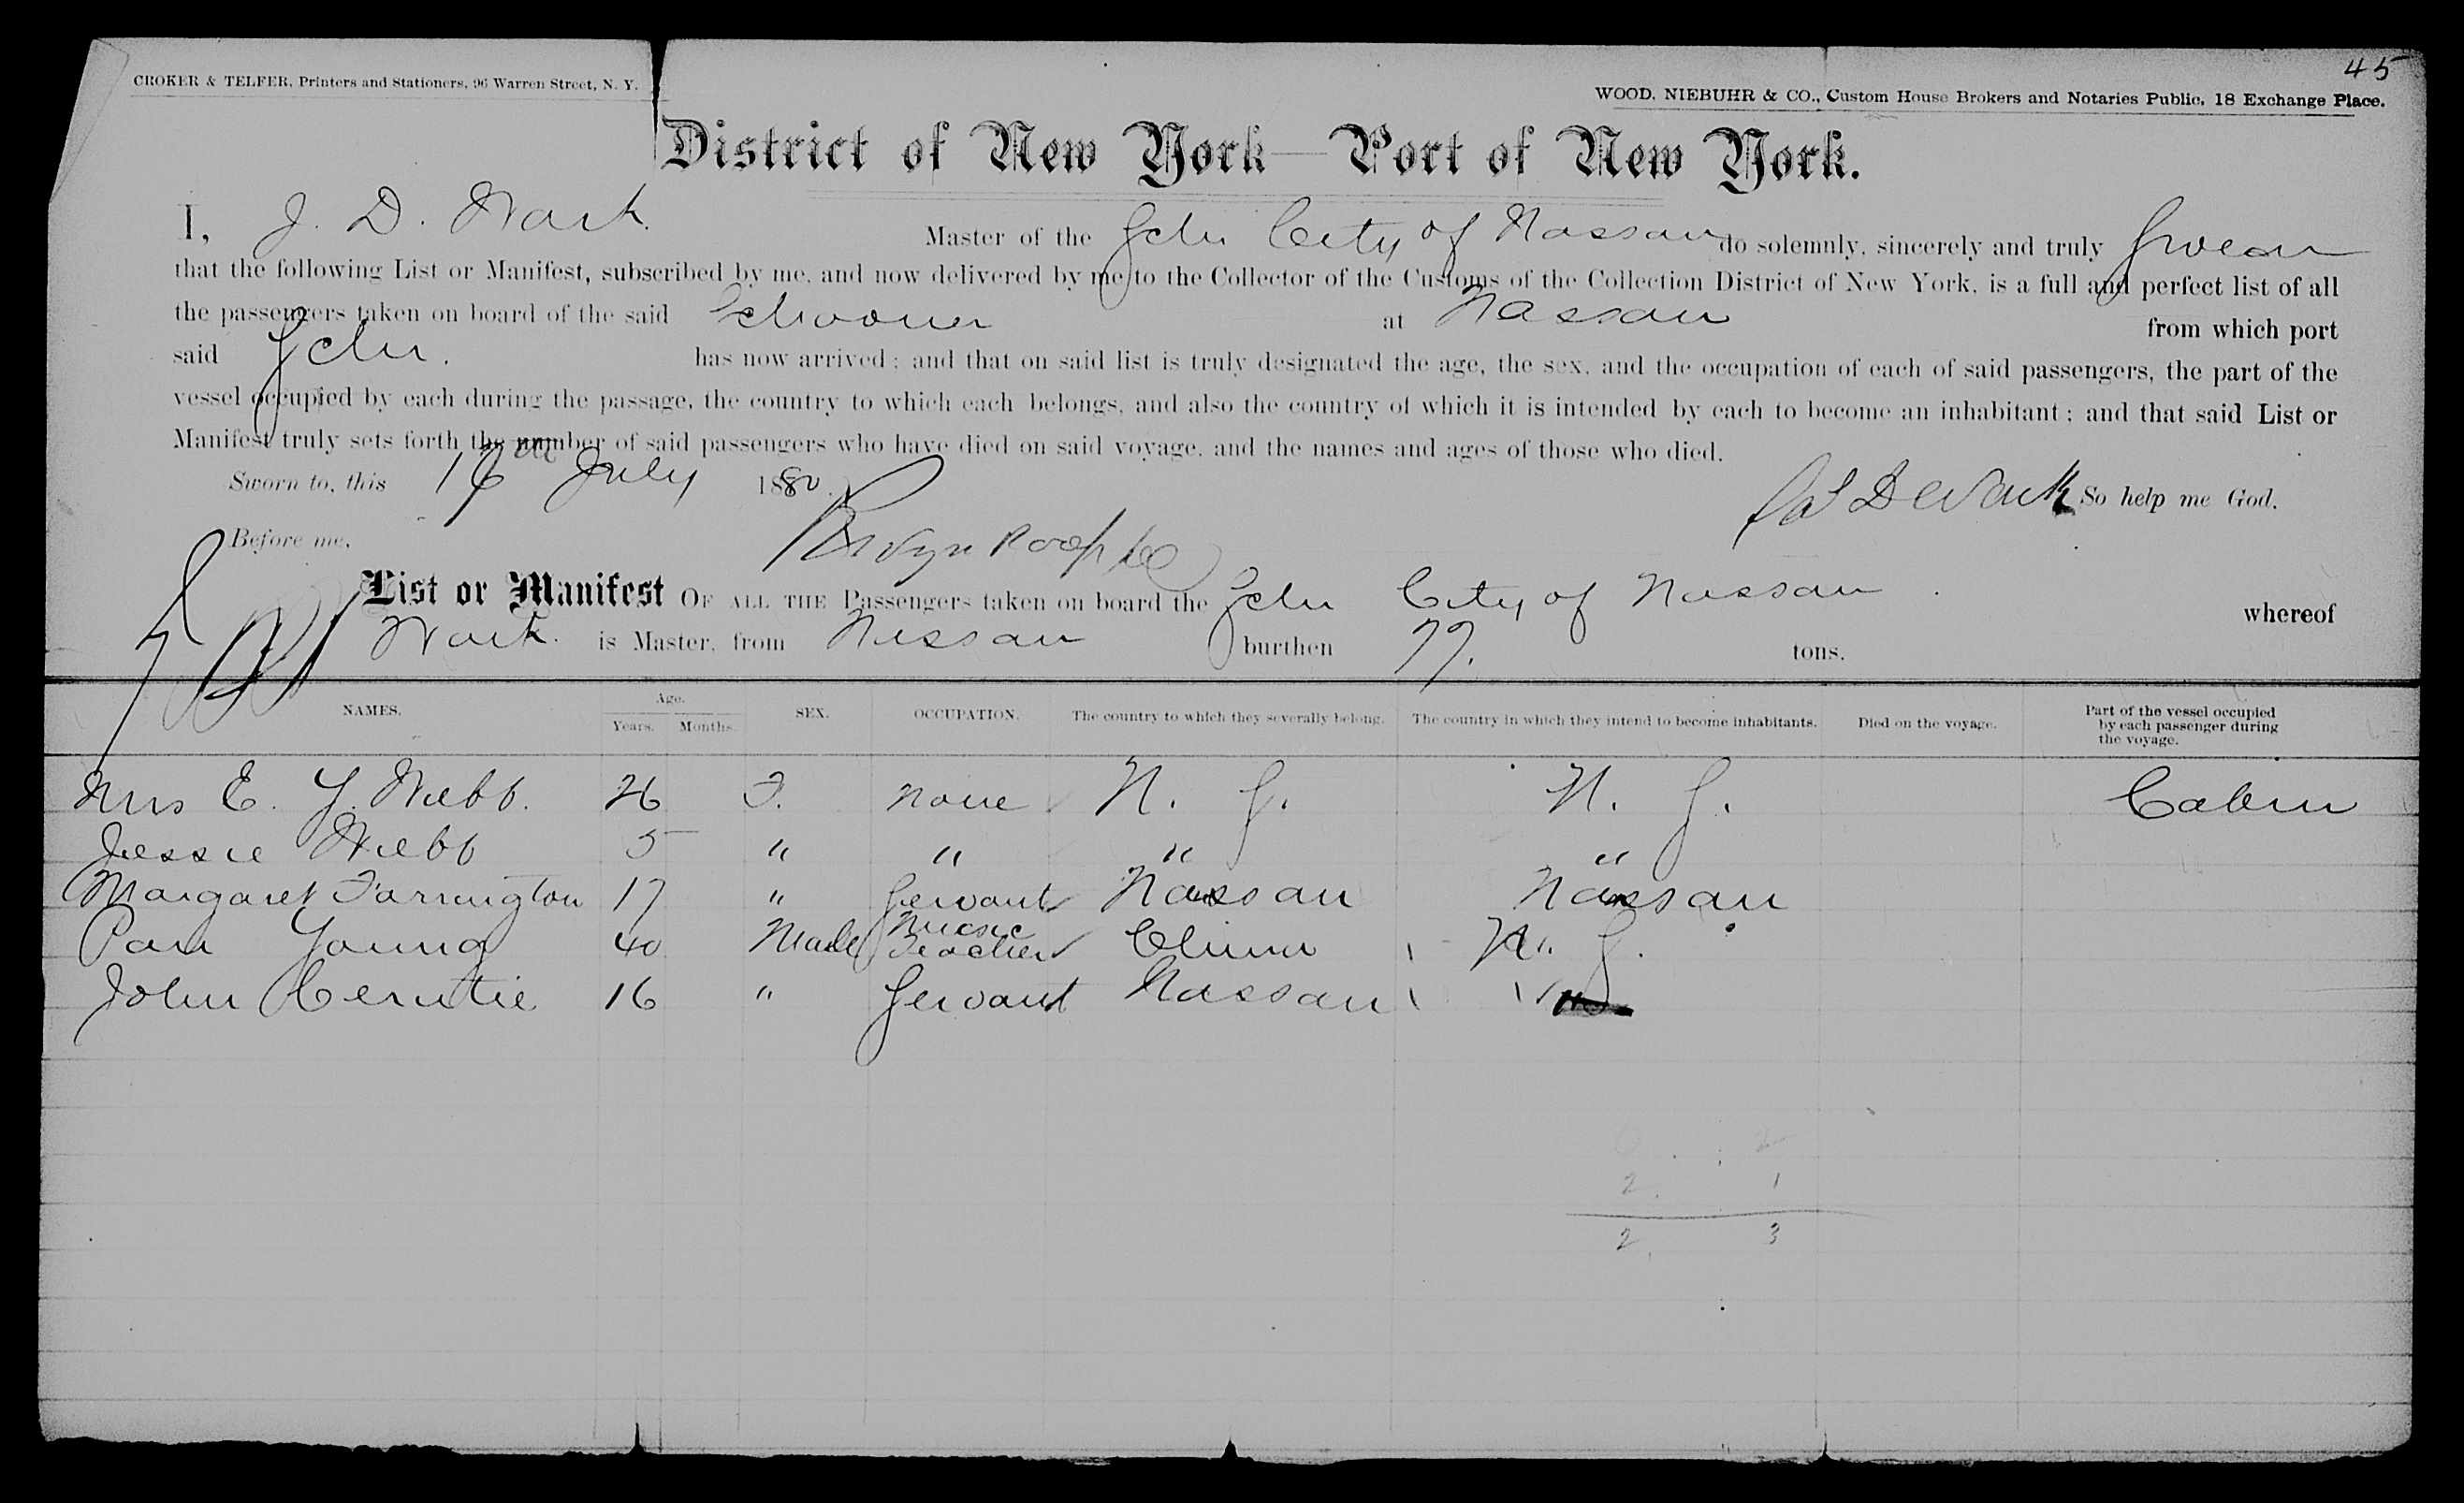 45
CROKER & TELFER, Printers and Stationers, 96 Warren Street, N. Y.
WOOD, NIEBUHR & CO., Custom House Brokers and Notaries Public, 18 Exchange Place.
District of New York—Port of New York.
I, J. D. Wark Master of the Schr City of Nassau do solemnly, sincerely and truly Swear
that the following List or Manifest, subscribed by me, and now delivered by me to the Collector of the Customs of the Collection District of New York, is a full and perfect list of all
the passengers taken on board of the said Schooner at Nassau from which port
said Schr. has now arrived; and that on said list is truly designated the age, the sex, and the occupation of each of said passengers, the part of the
vessel occupied by each during the passage, the country to which each belongs, and also the country of which it is intended by each to become an inhabitant; and that said List or
Manifest truly sets forth the number of said passengers who have died on said voyage, and the names and ages of those who died.
Sworn to, this 16th July 1880. J D Wark So help me God.
Before me,
List or Manifest OF ALL THE Passengers taken on board the Schr City of Nassau whereof
Wark. is Master, from Nassau burthen 77. tons.
NAMES. Age. Years. Months. SEX. OCCUPATION. The country to which they severally belong. The country in which they intend to become inhabitants. Died on the voyage. Part of the vessel occupied by each passenger during the voyage.
Mrs E. Y. Webb. 26 F. none N. Y. N. Y. Cabin
Jessie Webb 5 " " " "
Margaret Farrington 17 " Servant Nassau Nassau
Young 40 Male Music Teacher China N. Y.
John 16 " Servant Nassau
2 1
2 3